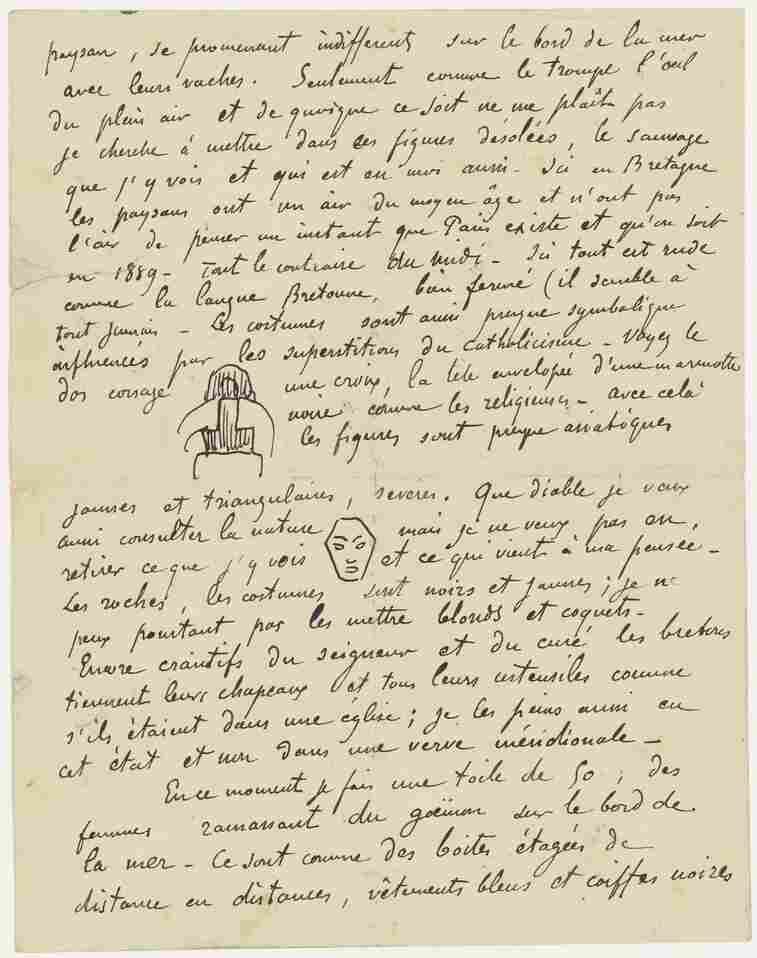 paysan, se promenant indifferents sur le bord de la mer
avec leurs vaches. Seulement comme le trompe l'œil
du plein air et de quoique ce soit ne me plaît pas
je cherche à mettre dans ces figures désolées, le sauvage
que j'y vois et qui est en moi aussi. Ici en Bretagne
les paysans ont un air du moyen âge et n'ont pas
l'air de penser un instant que Paris existe et qu'on soit
en 1889 - Tout le contraire du midi - Ici tout est rude
comme la langue Bretonne, bien fermé (il semble à
tout jamais - Les costumes sont aussi presque symbolique
influencés par les superstitions du catholicisme - Voyez le
dos corsage une croix, la tête envelopée d'une marmotte
noire comme les religieuses - avec celà
les figures sont presque asiatiques
jaunes et triangulaires, severes. Que diable je veux
aussi consulter la nature mais je ne veux pas en,
retirer ce que j'y vois et ce qui vient à ma pensée -
Les roches, les costumes sont noirs et jaunes ; je ne
peux pourtant pas les mettre blonds et coquets -
Encore craintifs du seigneur et du curé les bretons
tiennent leurs chapeaux et tous leurs ustensiles comme
s'ils étaient dans une église ; je les peins aussi en
cet état et non dans une verve méridionale -
En ce moment je fais une toile de 50 ; des
femmes ramassant du goëmon sur le bord de
la mer - Ce sont comme des boites étagées de
distance en distances, vêtements bleus et coiffes noires